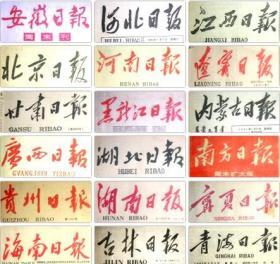 安徽日报
周末刊
河北日报
HEBEI RIBAO
江西日报
JIANGXI RIBAO
北京日报
河南日报
HENAN RIBAO
辽宁日报
LIAONING RIBAO
甘肃日报
GANSU RIBAO
黑龙江日报
内蒙古日报
廣西日報
GVANGJSIH YIZBAO
湖北日報
HUBEI RIBAO
南方日报
周末扩大版
贵州日報
GUIZHOU RIBAO
湖南日报
HUNAN RIBAO
宁夏日报
NINGXIA RIBAO
海南日报
吉林日报
JILIN RIBAO
青海日报
QINGHAI RIBAO